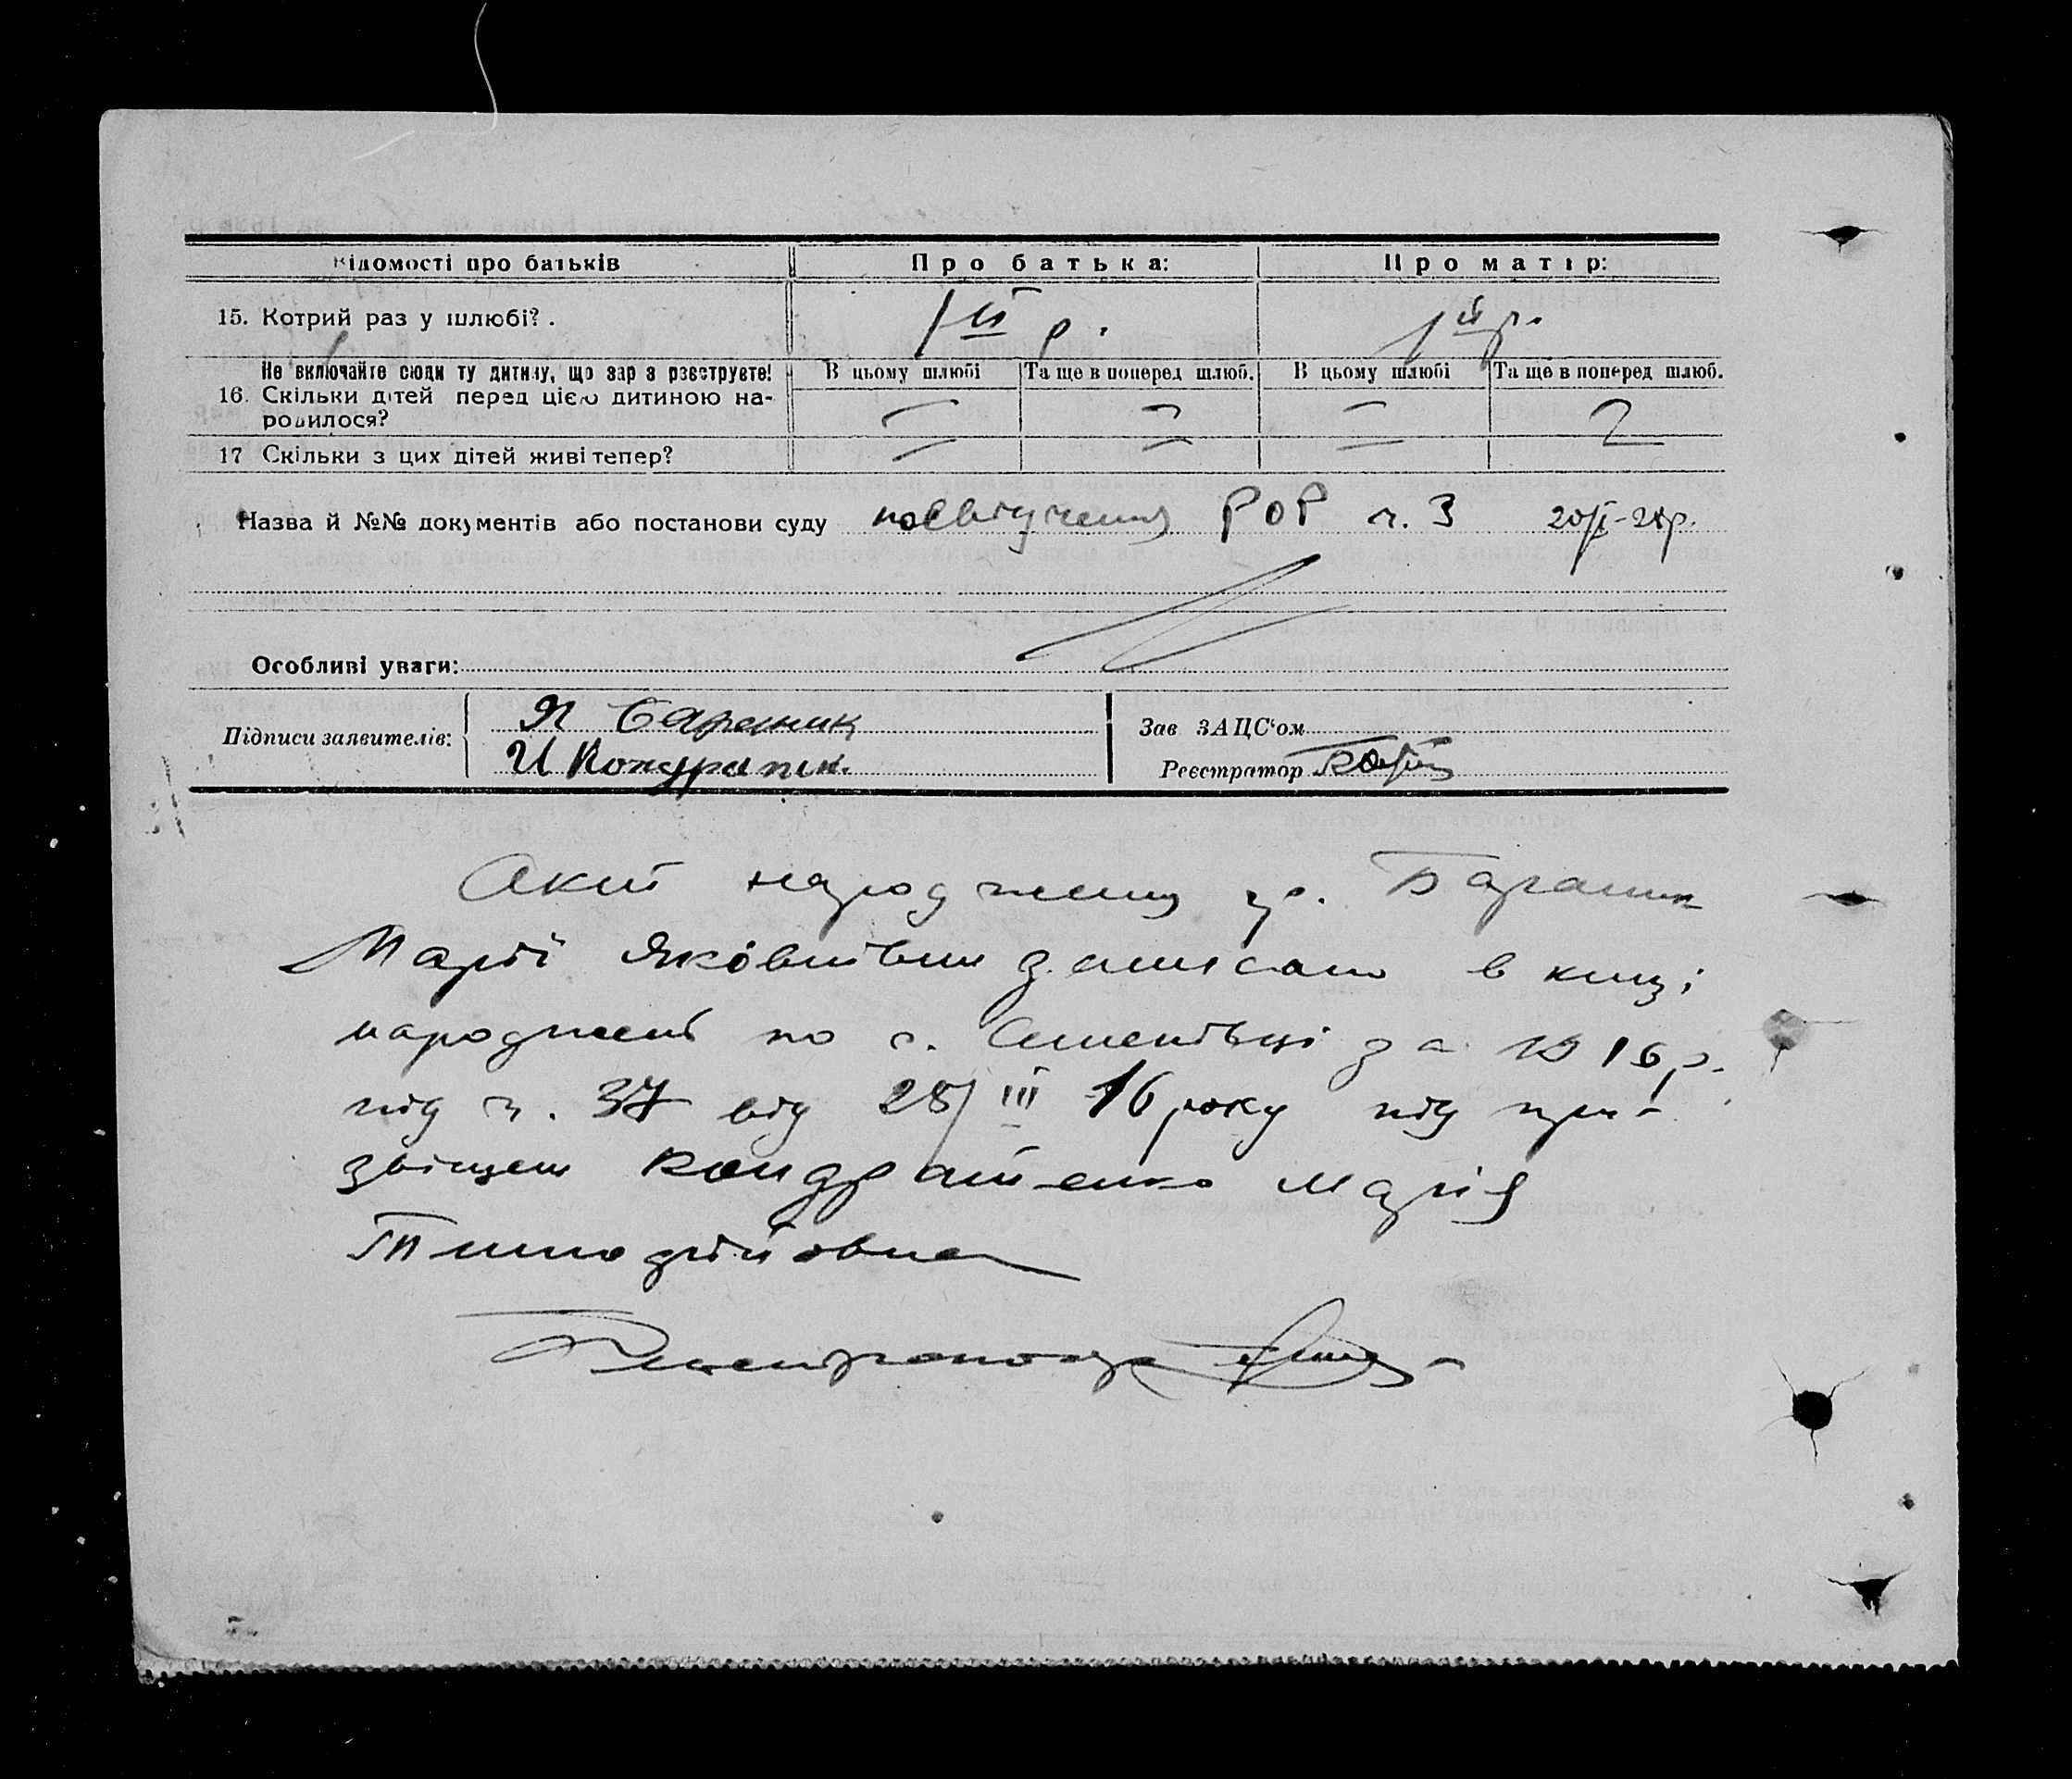 Відомості про батьків
Про батька:
Про матір:
15. Котрий раз у шлюбі? .
1й р.
1й р.
Не включайте сюди ту дитину, що зараз реєструєте!
16. Скільки дітей перед цією дитиною на-
родилося?
В цьому шлюбі
Та ще в поперед шлюб.
В цьому шлюбі
Та ще в поперед шлюб.
2
17 Скільки з цих дітей живі тепер?
Назва й №№ документів або постанови суду посвідчення РОР ч. 3
Особливі уваги:
Підписи заявителів:
Я Бараник
И Кондратен.
Зав ЗАЦС'ом
Реєстратор
Акт народження гр. Бараник
Марії Яковнівни записано в книзі
народжень по с. Семенівці за 1916 р.
під ч. 37 від 28/III 16 року під прі-
звищем Кондратенко Марія
Тимофіївна